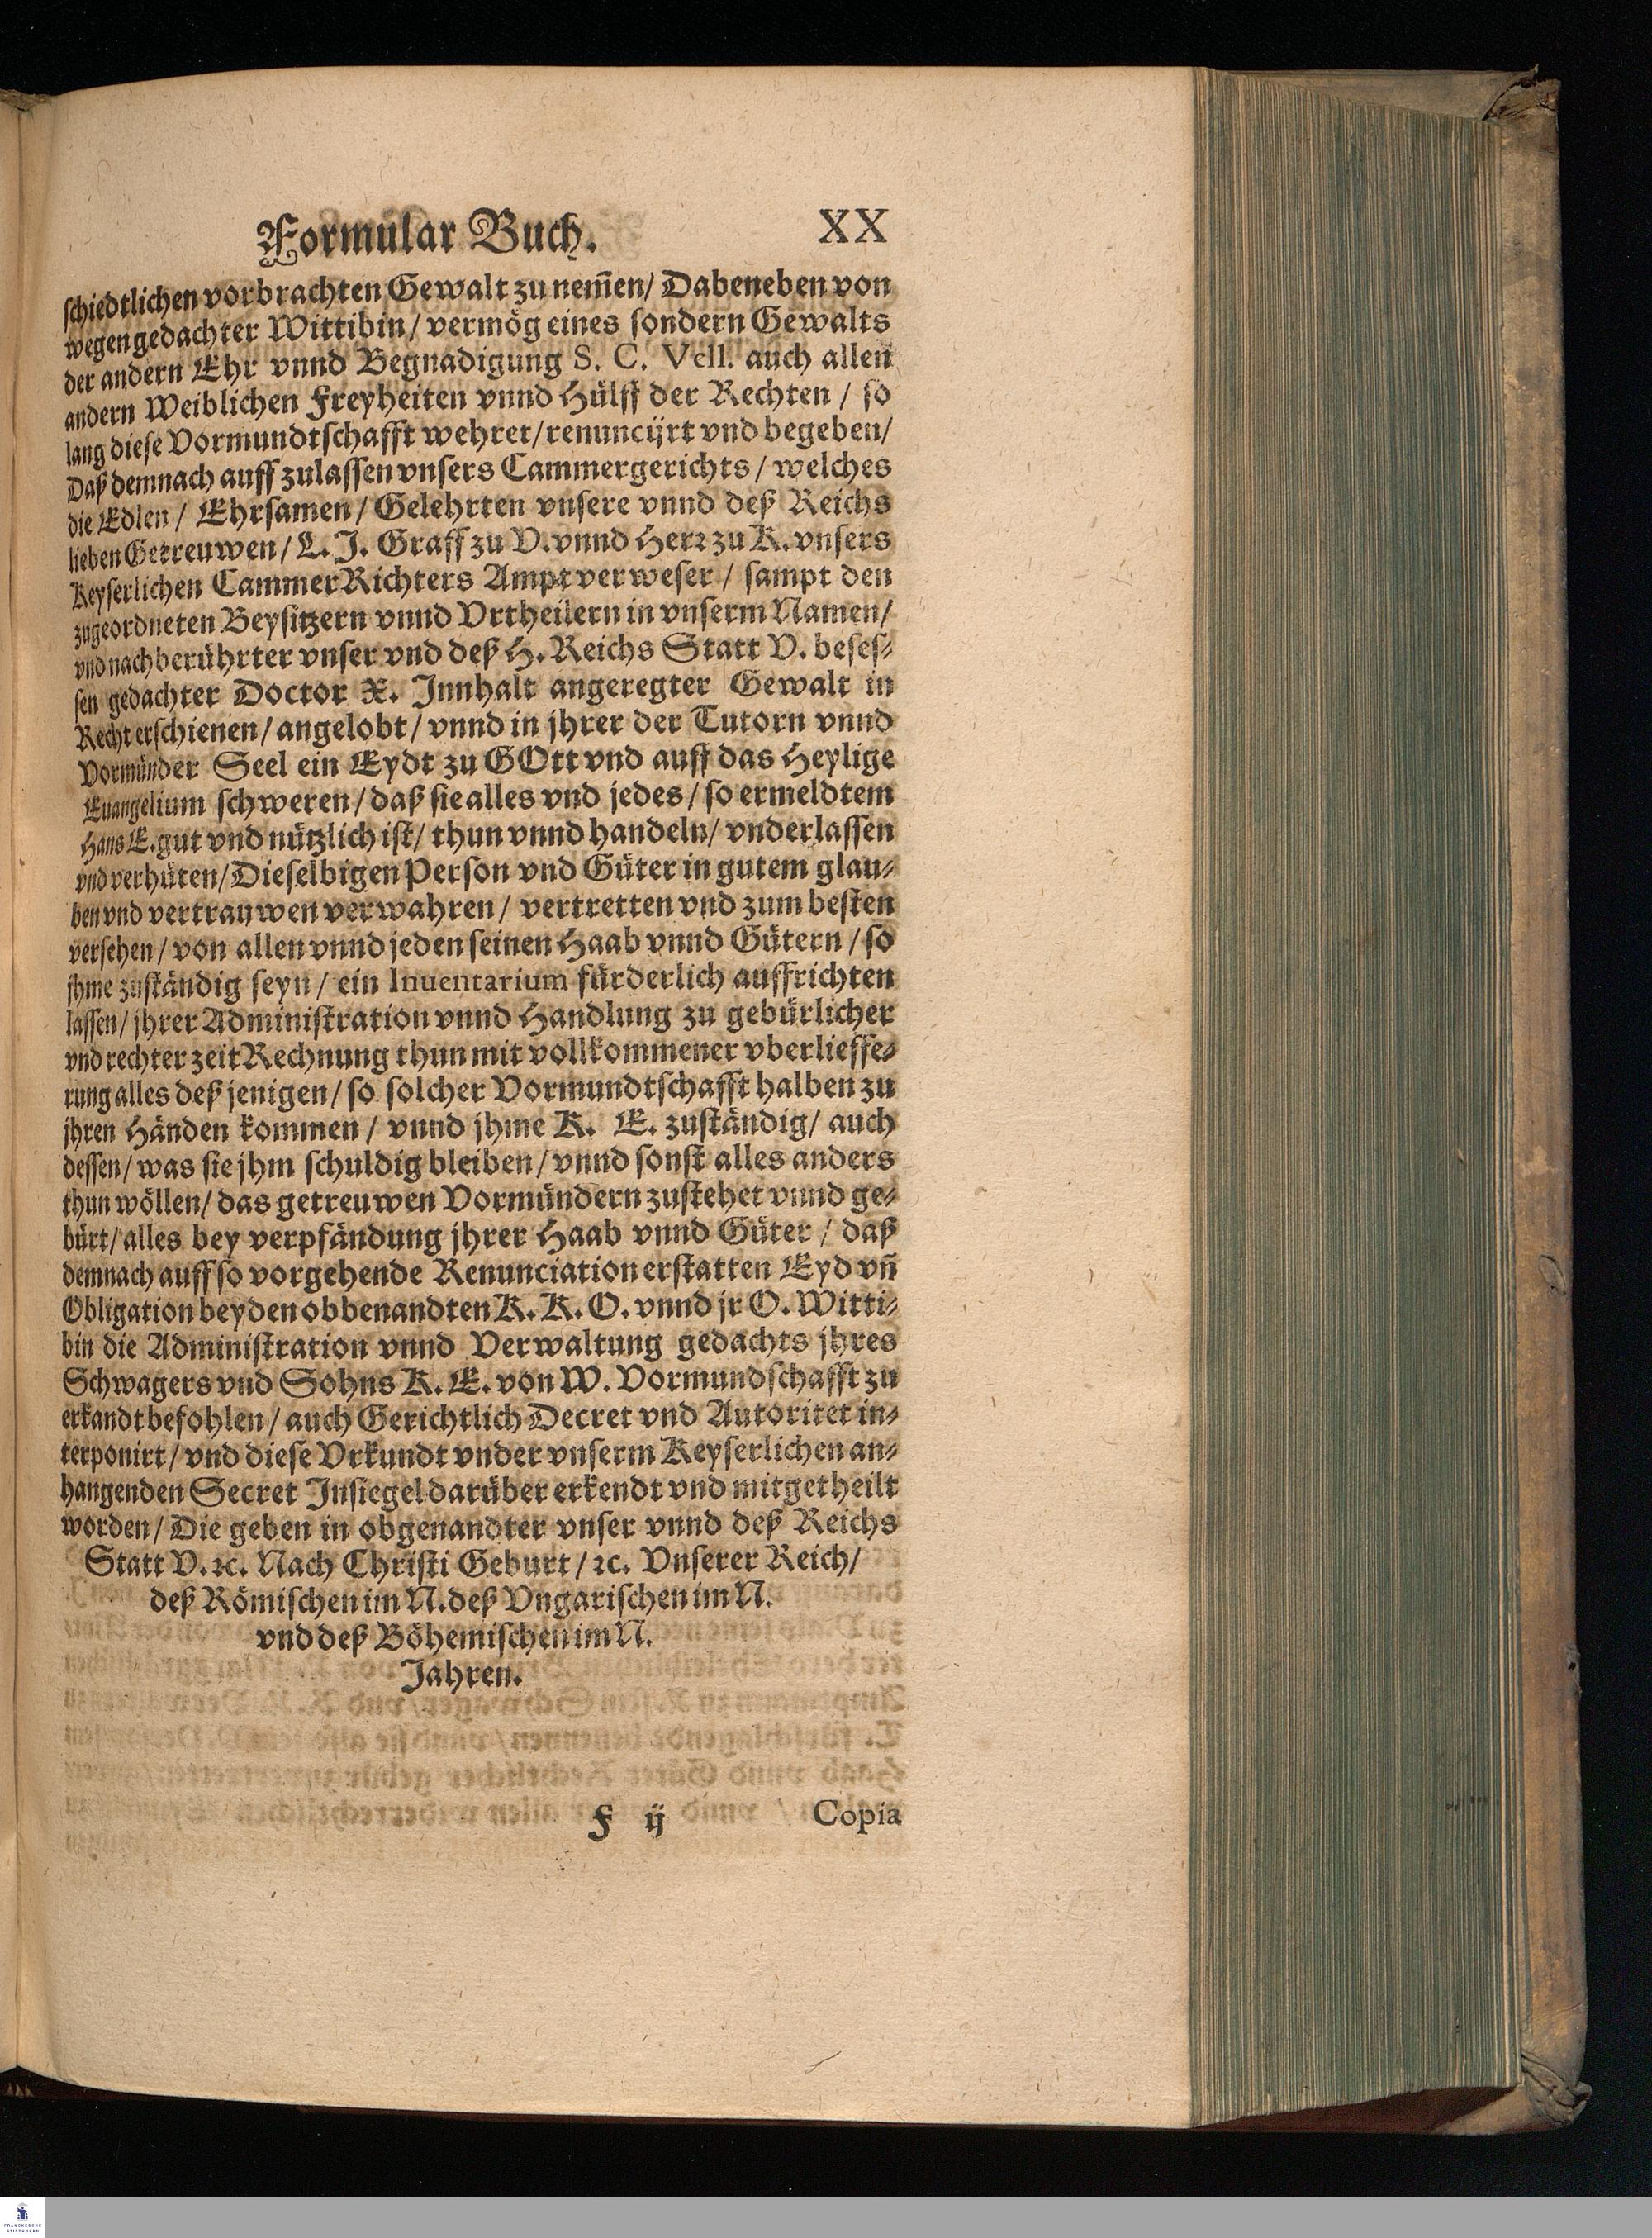 Formular Buch. XX
schiedtlichen vorbrachten Gewalt zu nem̃en/ Dabeneben von
wegen gedachter Wittibin/ vermög eines sondern Gewalts
der andern Ehr vnnd Begnadigung S. C. Vell. auch allen
andern Weiblichen Freyheiten vnnd Hülff der Rechten / so
lang diese Vormundtschafft wehret/ renuncijrt vnd begeben/
Daß demnach auff zulassen vnsers Cammergerichts / welches
die Edlen / Ehrsamen / Gelehrten vnsere vnnd deß Reichs
lieben Getreuwen / L. J. Graff zu V. vnnd Herꝛ zu K. vnsers
Keyserlichen CammerRichters Ampt verweser / sampt den
zugeordneten Beysitzern vnnd Vrtheilern in vnserm Namen/
vnd nach berührter vnser vnd deß H. Reichs Statt V. beses⸗
sen gedachter Doctor X. Innhalt angeregter Gewalt in
Recht erschienen / angelobt / vnnd in jhrer der Tutorn vnnd
Vormünder Seel ein Eydt zu GOtt vnd auff das Heylige
Euangelium schweren / daß sie alles vnd jedes / so ermeldtem
Hans E. gut vnd nützlich ist/ thun vnnd handeln/ vnderlassen
vnd verhüten/ Dieselbigen Person vnd Güter in gutem glau⸗
ben vnd vertrauwen verwahren / vertretten vnd zum besten
versehen / von allen vnnd jeden seinen Haab vnnd Gütern / so
jhme zuständig seyn / ein Inuentarium fürderlich auffrichten
lassen / jhrer Administration vnnd Handlung zu gebürlicher
vnd rechter zeit Rechnung thun mit vollkommener vberlieffe⸗
rung alles deß jenigen / so solcher Vormundtschafft halben zu
jhren Händen kommen / vnnd jhme K. E. zuständig/ auch
dessen / was sie jhm schuldig bleiben / vnnd sonst alles anders
thun wöllen/ das getreuwen Vormündern zustehet vnnd ge⸗
bürt/ alles bey verpfändung jhrer Haab vnnd Güter / daß
demnach auff so vorgehende Renunciation erstatten Eyd vñ
Obligation beyden obbenandten K. K. O. vnnd jr O. Witti⸗
bin die Administration vnnd Verwaltung gedachts jhres
Schwagers vnd Sohns K. E. von W. Vormundschafft zu
erkandt befohlen / auch Gerichtlich Decret vnd Autoritet in⸗
terponirt / vnd diese Vrkundt vnder vnserm Keyserlichen an⸗
hangenden Secret Insiegel darüber erkendt vnd mitgetheilt
worden / Die geben in obgenandter vnser vnnd deß Reichs
Statt V. ꝛc. Nach Christi Geburt / ꝛc. Vnserer Reich/
deß Römischen im N. deß Vngarischen im N.
vnd deß Böhemischen im N.
Jahren.
F ij Copia
FRANCKESCHE
STIFTUNGEN